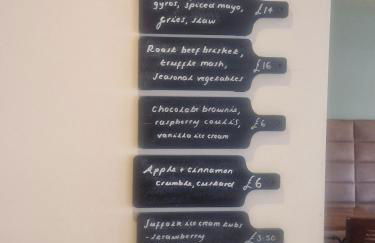 gyros, spiced mayo,
fries, slaw
£14
Roast beef brisket,
truffle mash,
seasonal vegetables
£16
Chocolate brownie,
raspberry coulis,
vanilla ice cream
£6
Apple + Cinnamon
crumble, custard
£6
Suffolk ice cream tubs
- strawberry
£3.50